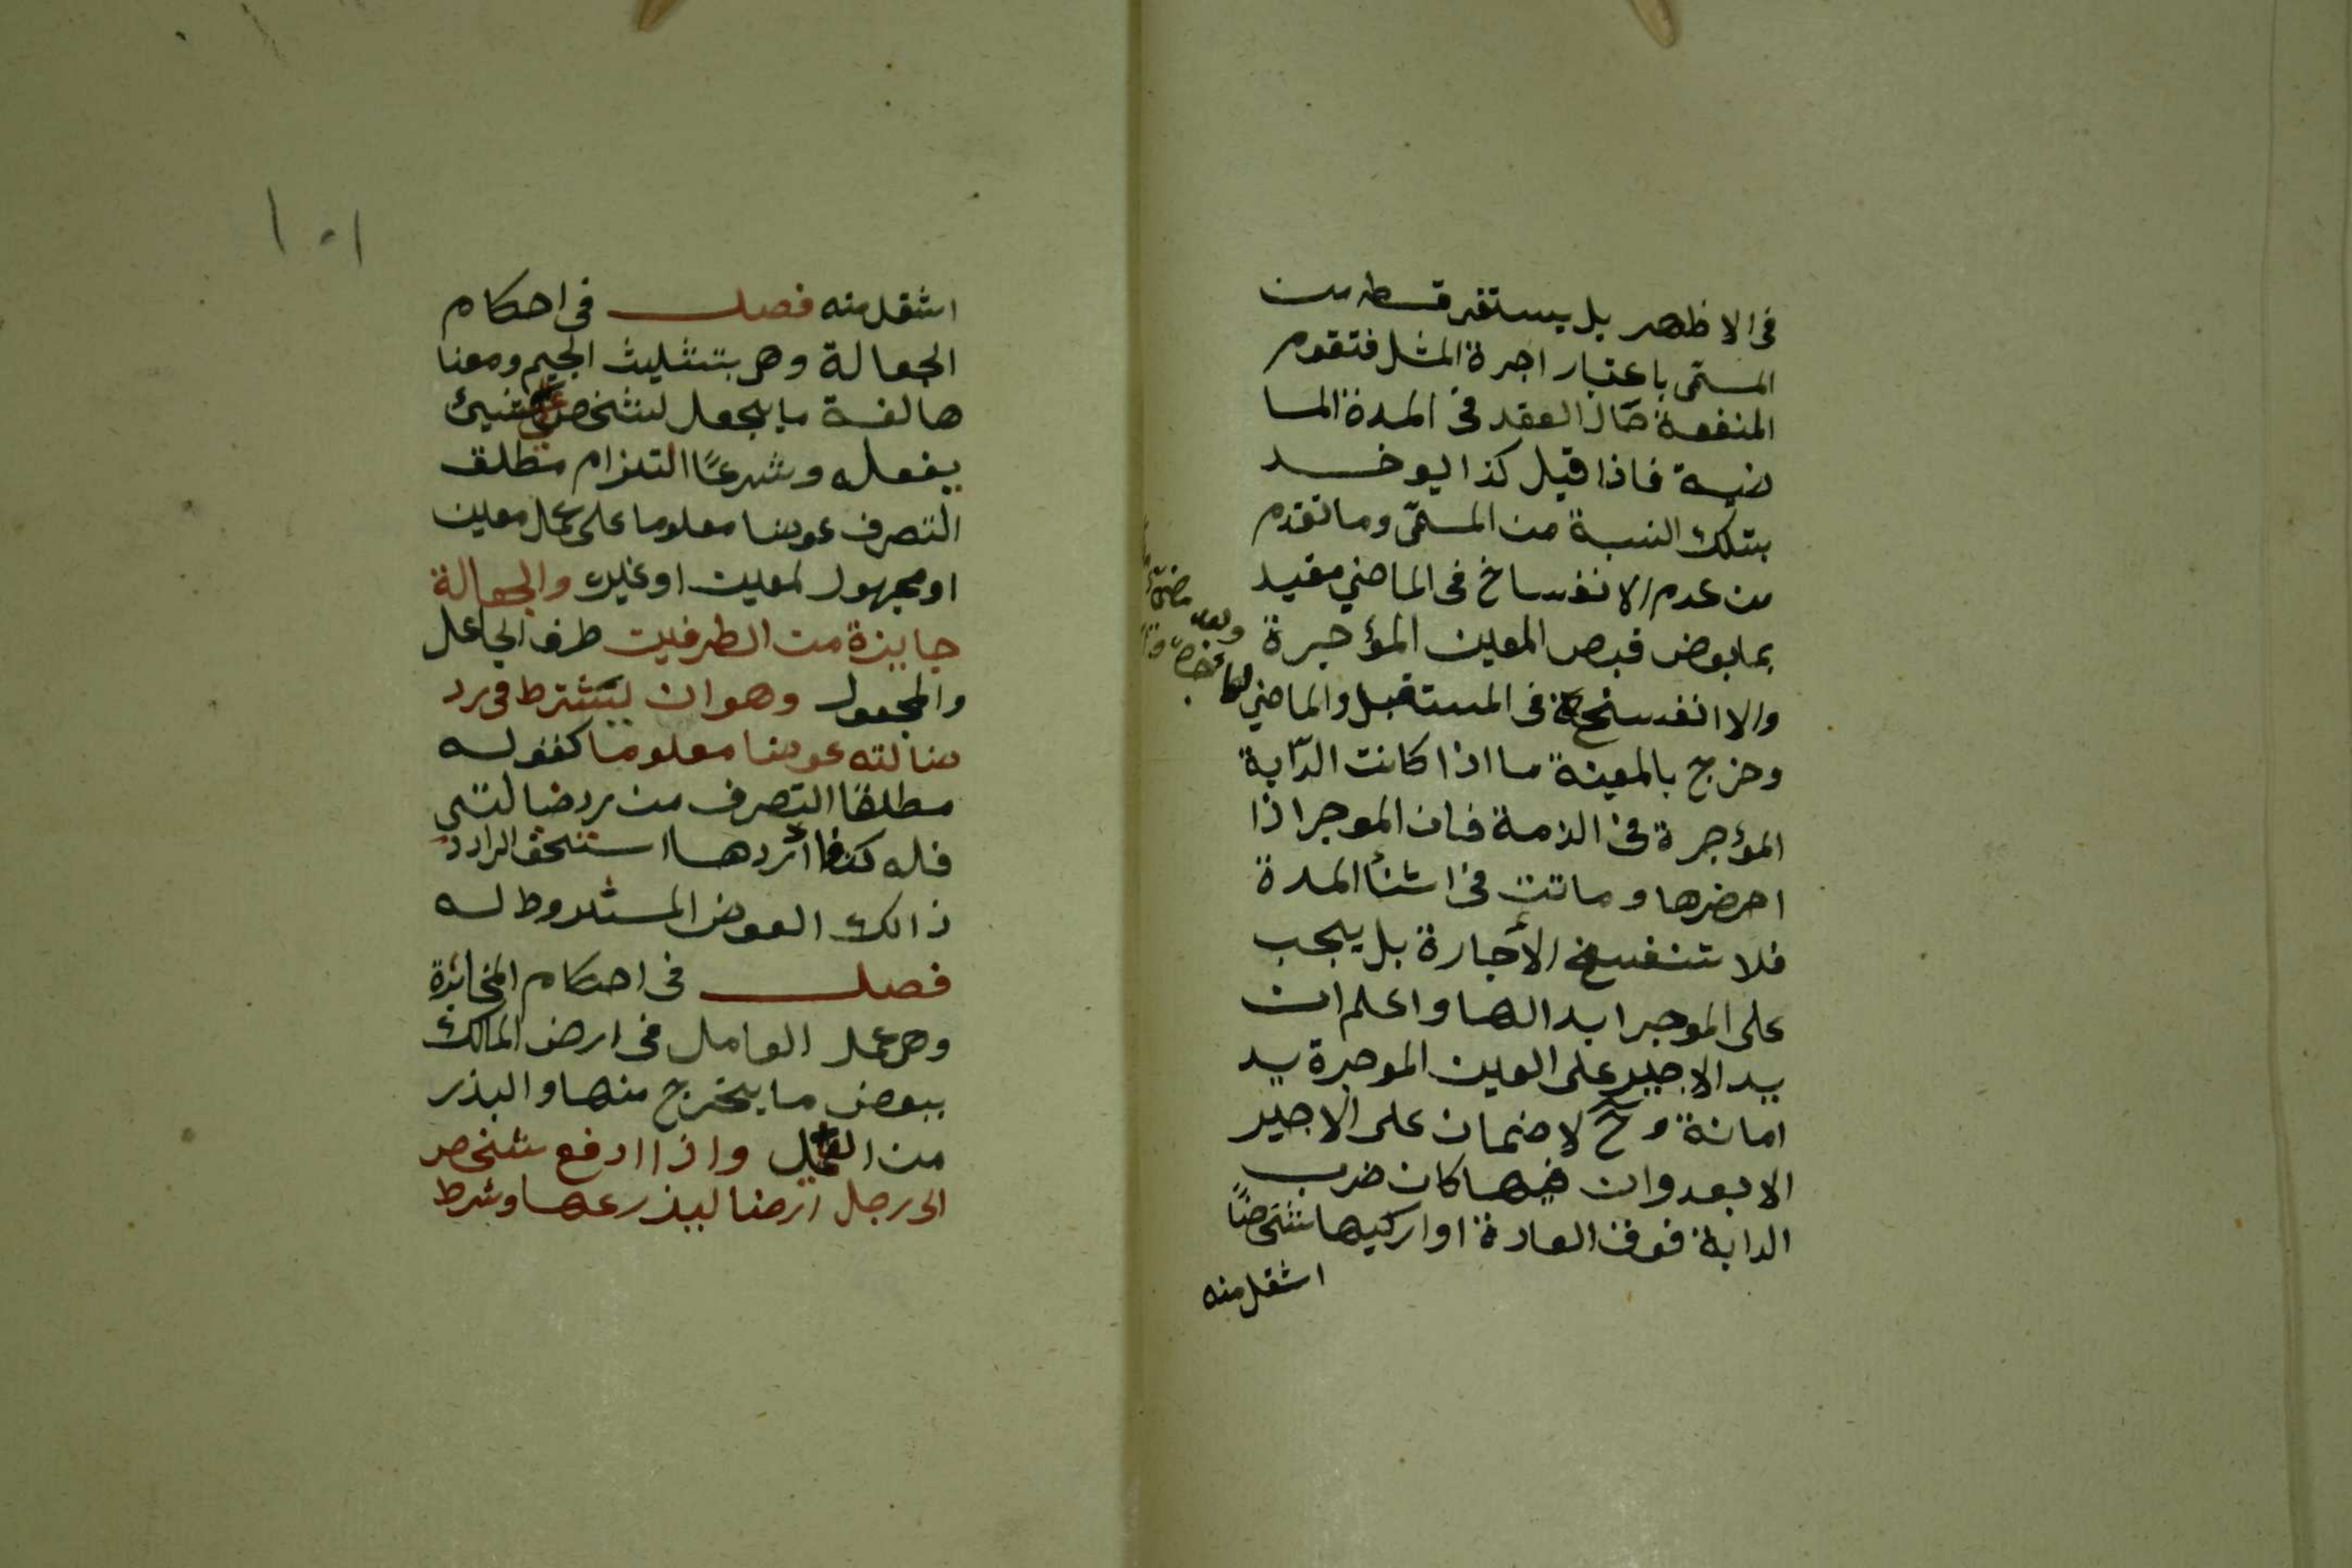 فى الاظهر بل يستقر قسطه من
المسمّى باعتبار اجرة المثل فتقوم
المنفعة حال العقد فى المدة الما
ضية فاذا قيل كذا يوخد
بتلك النسبة من المسمّى وما تقدم
من عدم الانفساخ فى الماضي مقيد
بما بعض قبص المعين المؤجرة
والا انفسخ فى المستقبل والماضي
وخرج بالمعينة ما اذا كانت الدّابة
المؤجرة فى الذمة فان الموجر اذا
احضرها وماتت فى اثنأ المدة
فلا تنفسخ الأجارة بل يجب
على الموجر ابدالها واعلم ان
يد الاجير على العين الموجرة يد
امانة وح لا ضمان على الاجير
الا بعدوان فيها كان ضرب
الدابة فوق العادة او اركبها شخصًا
اثقل منه
١٠١
اثقل منه فصل فى احكام
الجعالة وهى بتثليث الجيم ومعنا
ها لغة ما يجعل لشخص على شيئ
يفعله وشرعًا التزام مطلق
التصرف عوضا معلوما على عمل معين
او مجهول لمعين او غيره والجعالة
جايزة من الطرفين طرف الجاعل
والمجعول وهو ان يشترط فى رد
ضالته عوضا معلوما كقوله
مطلقا التصرف من رد ضالتى
فله كذا ردها استحق الراد
ذالك العوض المشروط له
فصل فى احكام المخابرة
وهى عمل العامل فى ارض المالك
ببعض ما يخرج منها والبذر
من العامل واذا ادفع شخص
الى رجل ارضا ليذرعها وشرط